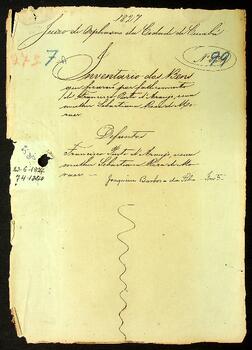 1827
Juizo de Orphaons da Cidade de Cuiabá
7
Nº 99
Inventario dos Bens
que ficarão por fallecimento
de Francisco Pinto d'Araujo, e sua
mulher Sebastiana
Defuntos
Francisco Pinto d'Araujo, e sua
mulher Sebastiana
Joaquim Barbosa da Silva